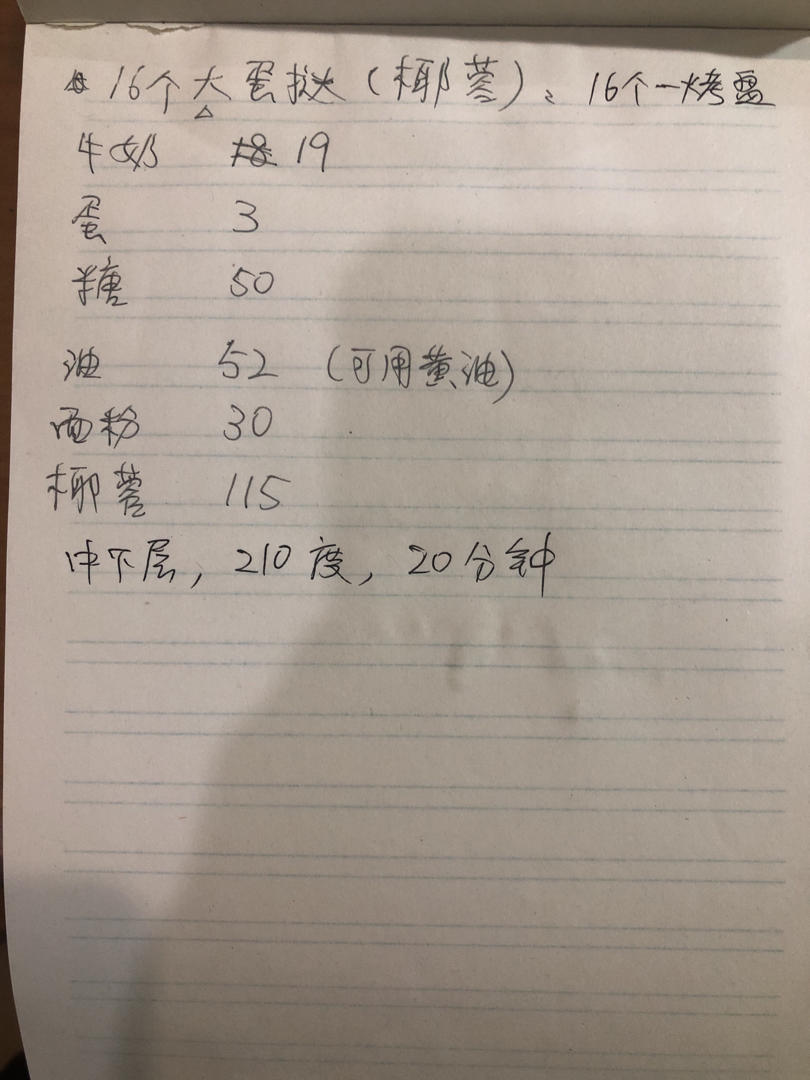 16个大蛋挞（椰蓉）：16个一烤盘
牛奶 18 19
蛋 3
糖 50
油 52 （可用黄油）
面粉 30
椰蓉 115
中下层，210度，20分钟